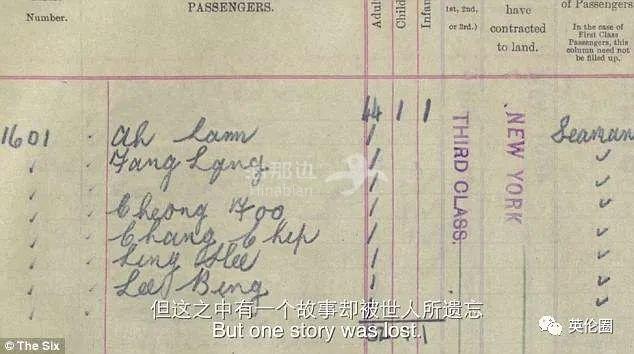 Number.
PASSENGERS.
Adul
Child
Infan
1st, 2nd,
or 3rd.)
have
contracted
to land.
of Passengers.
In the case of
First Class
Passengers, this
column need not
be filled up.
44 1 1
1601 Ah Lam 1 Seaman
Fang Lang 1
Cheong Foo 1
Chang Chip 1
Ling Hee 1
Lee Bing 1
THIRD CLASS.
NEW YORK
那边
Hinabian
但这之中有一个故事却被世人所遗忘
But one story was lost.
© The Six
英伦圈